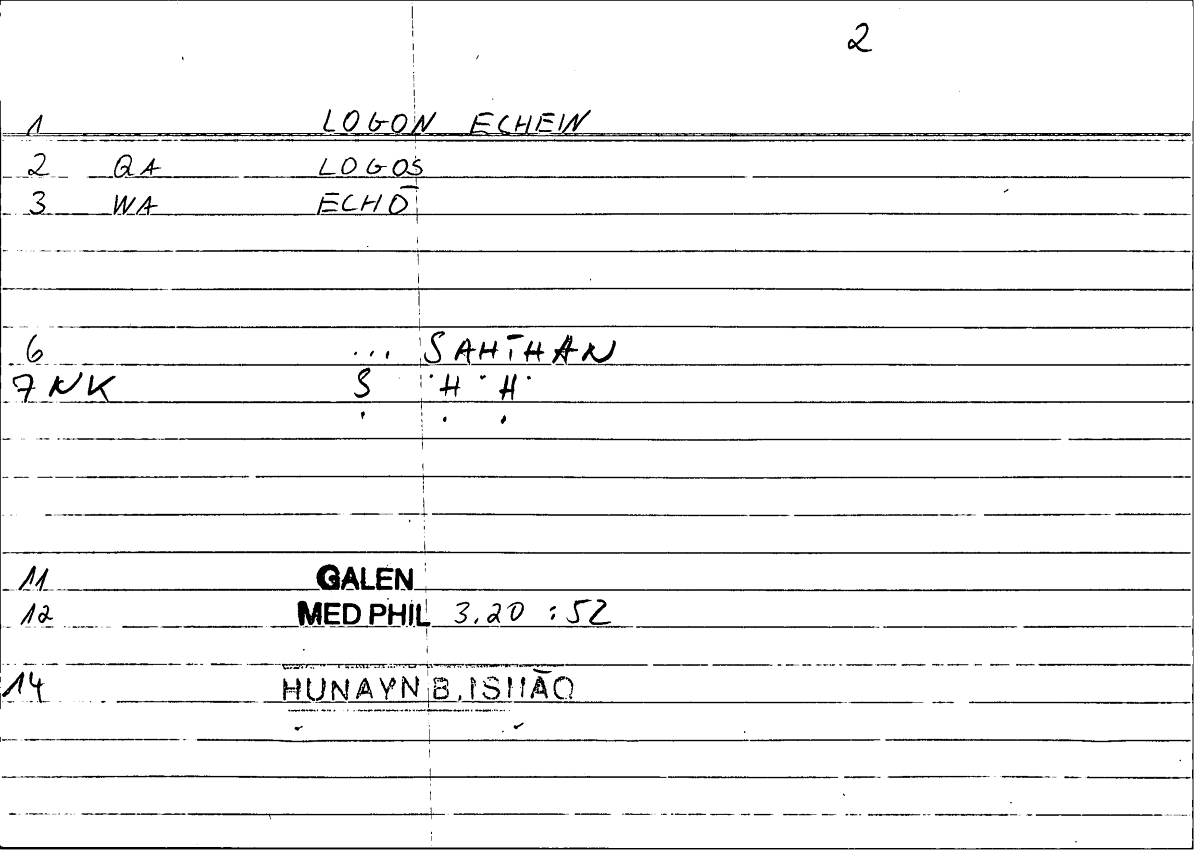 2
1 LOGON ECHEIN
2 QA LOGOS
3 WA ECHŌ
6 ... SAHĪHAN
7 NK Ṣ Ḥ Ḥ
11 GALEN
12 MED PHIL 3.20 :52
14 ḤUNAYN B. ISḤĀQ